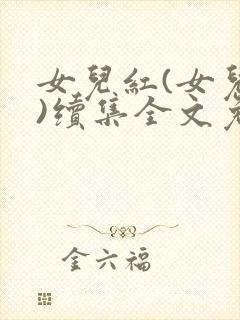 女兒紅(女兒
)續集全文
金六福